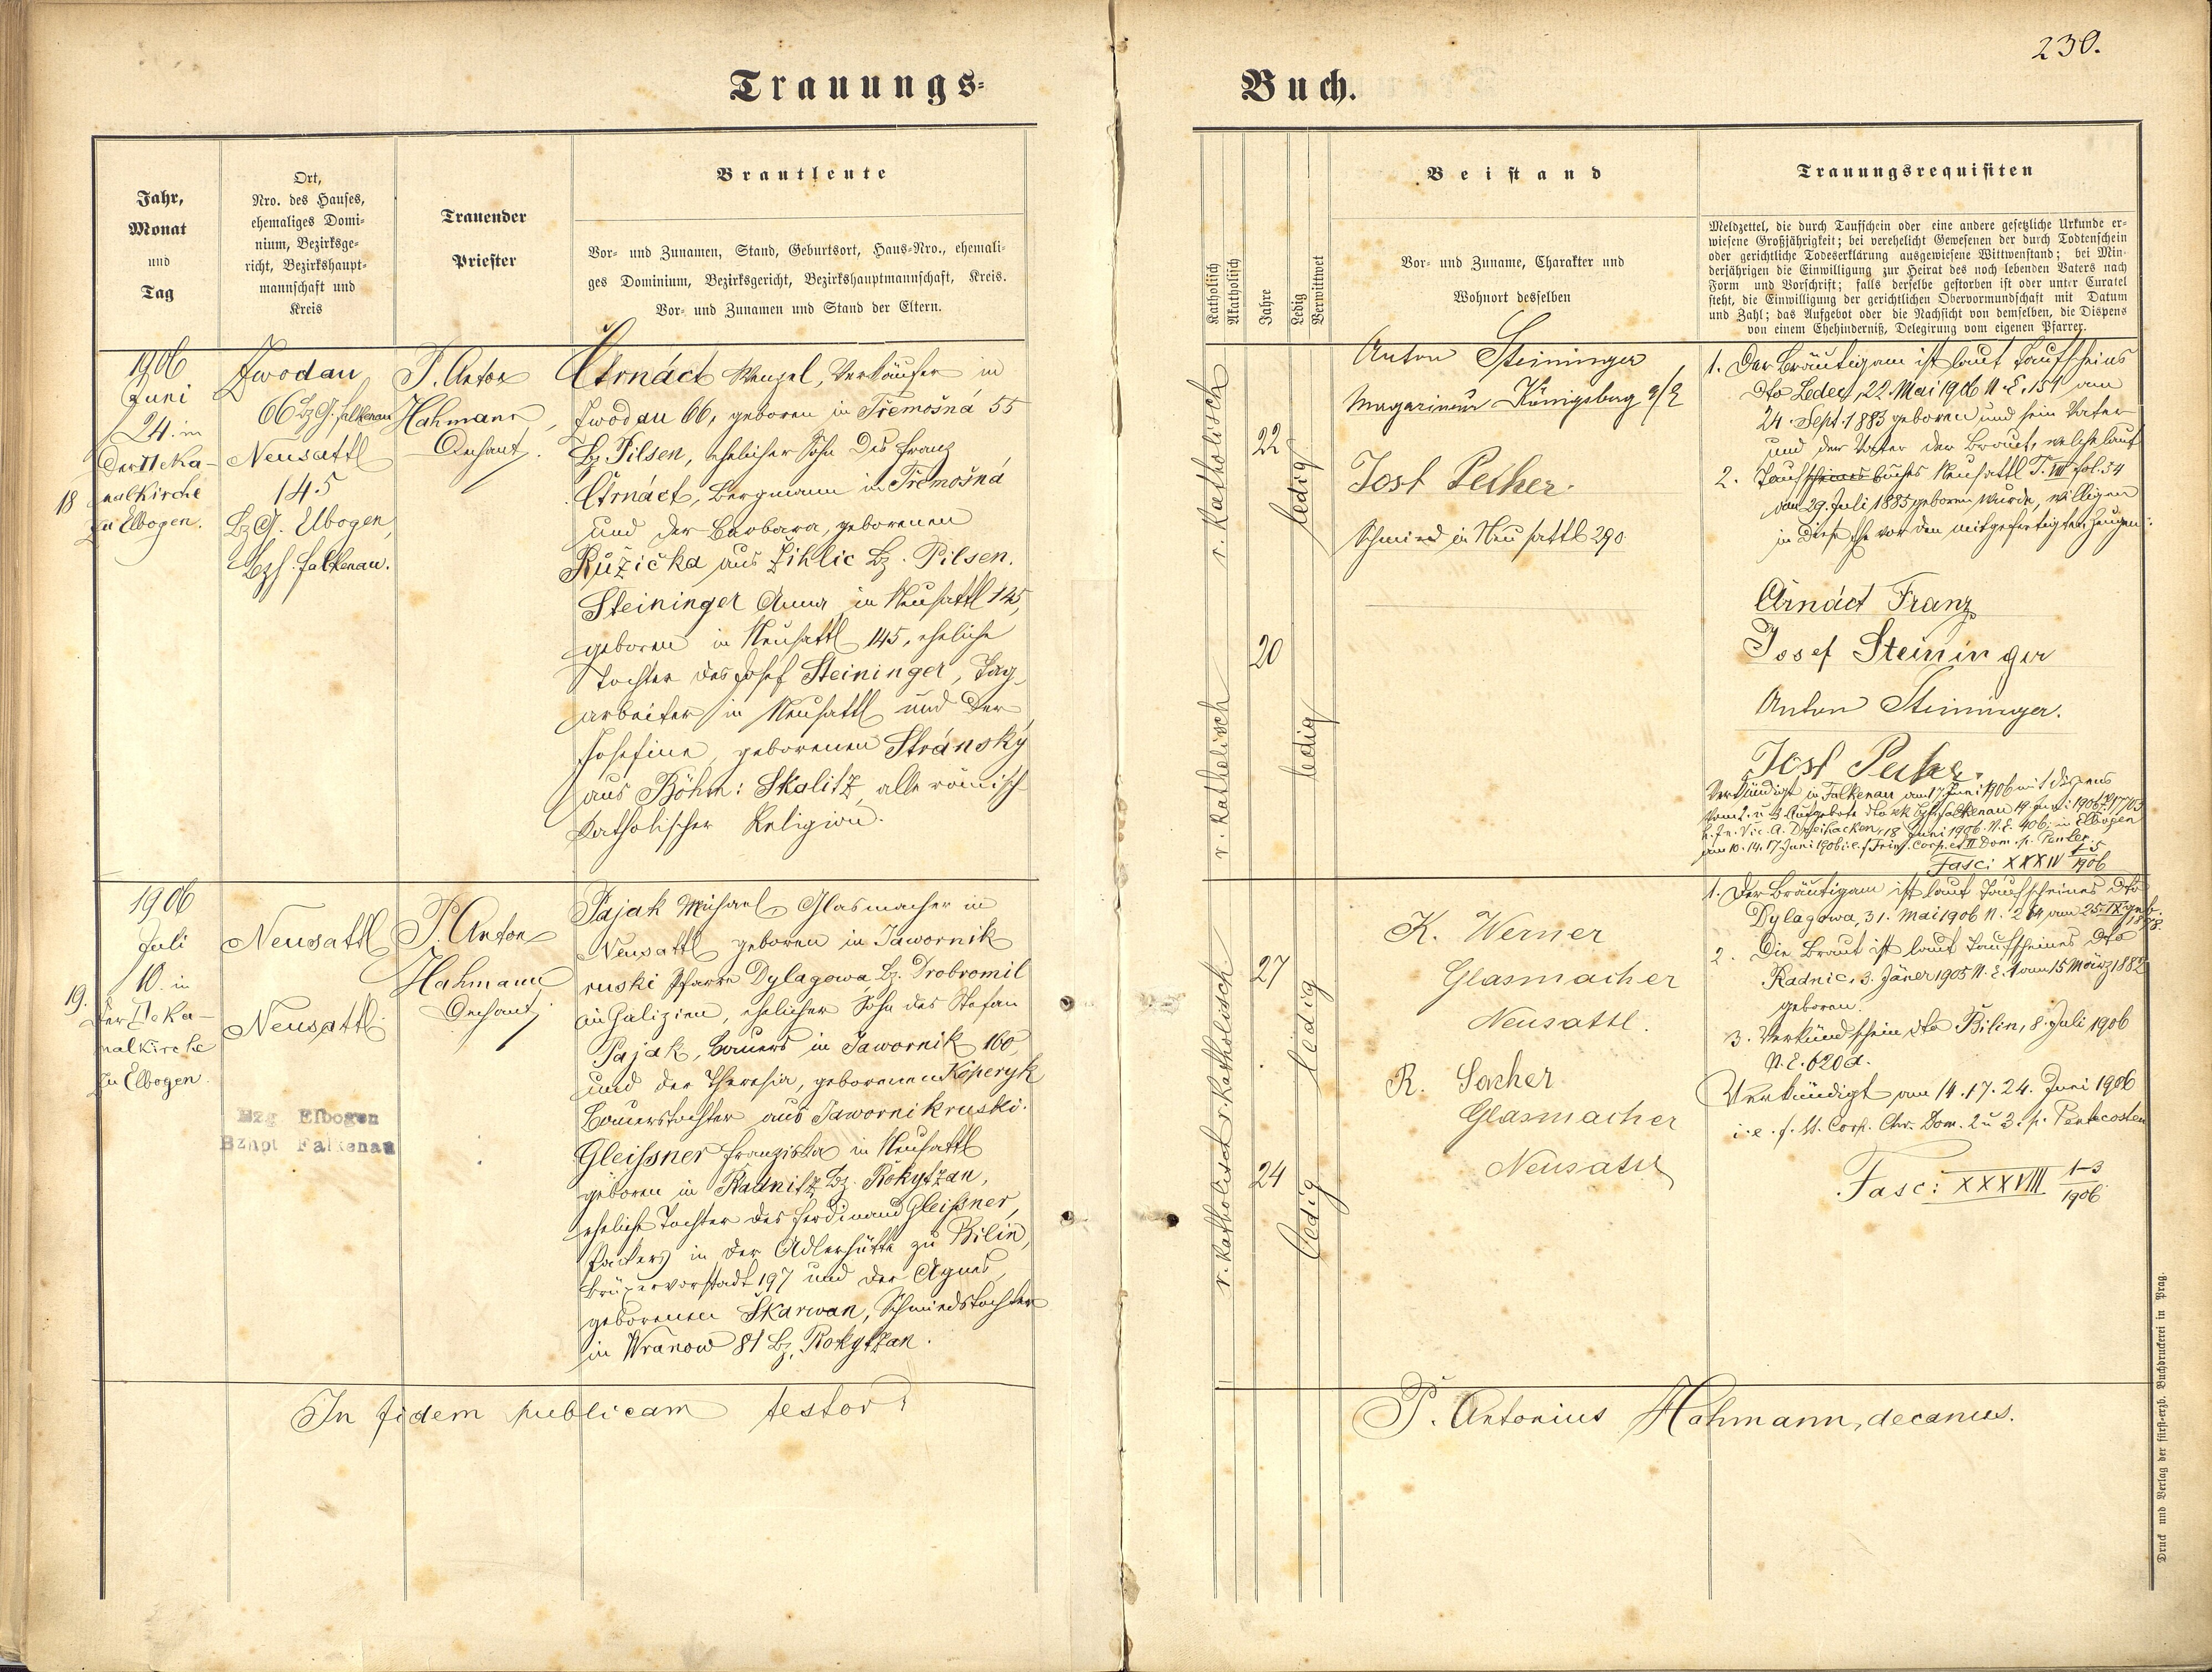 230.
Trauungs-
Buch.
Jahr,
Monat
und
Tag
Ort,
Nro. des Hauses,
ehemaliges Domi-
nium, Bezirksge-
richt, Bezirkshaupt-
mannschaft und
Kreis
Trauender
Priester
Brautleute
Vor- und Zunamen, Stand, Geburtsort, Haus-Nro., ehemali-
ges Dominium, Bezirksgericht, Bezirkshauptmannschaft, Kreis.
Vor- und Zunamen und Stand der Eltern.
Katholisch
Akatholisch
Jahre
Ledig
Verwittwet
Beistand
Vor- und Zuname, Charakter und
Wohnort desselben
Trauungsrequisiten
Meldzettel, die durch Taufschein oder eine andere gesetzliche Urkunde er-
wiesene Großjährigkeit; bei verehelicht Gewesenen der durch Todtenschein
oder gerichtliche Todeserklärung ausgewiesene Wittwenstand; bei Min-
derjährigen die Einwilligung zur Heirat des noch lebenden Vaters nach
Form und Vorschrift; falls derselbe gestorben ist oder unter Curatel
steht, die Einwilligung der gerichtlichen Obervormundschaft mit Datum
und Zahl; das Aufgebot oder die Nachsicht von demselben, die Dispens
von einem Ehehinderniß, Delegirung vom eigenen Pfarrer.
18
1906
Juni
24. in
der Deka-
nalkirche
zu Elbogen.
Zwodau
66 Bz G. Falkenau
Neusattl
145
Bz G. Elbogen,
Bzh. Falkenau.
P. Anton
Hahmann,
Dechant.
Čtrnáct Wenzel, Verkäufer in
Zwodau 66, geboren in Třemošná 55
Bz Pilsen, ehelicher Sohn des Franz
Čtrnáct, Bergmann in Třemošná
und der Barbara, geborenen
Růžička aus Žiklic Bz. Pilsen.
Steininger Anna in Neusattl 145,
geboren in Neusattl 145, eheliche
Tochter des Josef Steininger, Tag-
arbeiter in Neusattl und der
Josefine, geborenen Stránský
aus Böhm: Skalitz, alle römisch
katholischer Religion.
r. Katholisch
22
ledig
r. Katholisch
20
ledig
Anton Steininger
Magazineur Königsberg a/E
Josf Pecher
Schmied in Neusattl 290
1. Der Bräutigam ist laut Taufscheins
dto Ledec, 22. Mai 1906 N. E. 154 am
24. Sept. 1883 geboren und sein Vater
und der Vater der Braut, welche laut
2. Taufscheines buches Neusattl T. VIII fol. 54
am 29. Juli 1885 geboren wurde, willigen
in diese Ehe vor den mitgefertigten Zeugen:
Čtrnáct Franz
Josef Steininger
Anton Steininger.
Josf Pecher.
Verkündigt in Falkenau am 17. Juni 1906 mit Dispens
vom 2. u 3 Aufgebote dto kk Bzh. Falkenau 19. Juni 1906
18 Juni 1906. N. E. 406; in Elbogen
am 10. 14. 17 Juni 1906 i. e. f. Trin. Corp. et II Dom. p. Pentec.
Fasc: XXXIV 1-5/1906
19.
1906
Juli
10. in
der Deka-
nalkirche
zu Elbogen.
Neusattl
Neusattl
Bzg Elbogen
Bzhpt Falkenau
P. Anton
Hahmann
Dechant
Pajak Michael, Glasmacher in
Neusattl geboren in Jawornik
ruski Pfarre Dylagowa, Bz. Drobromil
in Galizien, ehelicher Sohn des Stefan
Pajak, Bauers in Jawornik 160,
und der Theresia, geborenen Koperyk
Bauerstochter aus Jawornikruski.
Gleißner Franziska in Neusattl
geboren in Radnitz Bz. Rokytzan,
eheliche Tochter des Ferdinand Gleißner,
Packers in der Adlerhütte zu Bilin,
Brüxervorstadt 197 und der Agnes,
geborenen Škarwan, Schmiedstochter
in Wranow 81 Bz. Rokytzan.
r. Katholisch
27
ledig
r. Katholisch
24
ledig
K. Werner
Glasmacher
Neusattl.
R. Sacher
Glasmacher
Neusattl
1. Der Bräutigam ist laut Taufscheines dto
Dylagowa, 31. Mai 1906 N. 264 am 25. IX. geb.
1878.
2. Die Braut ist laut Taufscheines dto
Radnic, 3. Jäner 1905 N. E. 1 am 15 März 1882
geboren.
3. Verkündschein dto Bilin, 8. Juli 1906
N. E. 620 d.
Verkündigt am 14. 17. 24. Juni 1906
i. e. f. SS. Corp. Chr. Dom. 2 u 3. p. Pentecosten
Fasc: XXXVIII 1-3/1906
In fidem publicam testor:
P. Antonius Hahmann, decanus.
Druck und Verlag der fürst-erzb. Buchdruckerei in Prag.